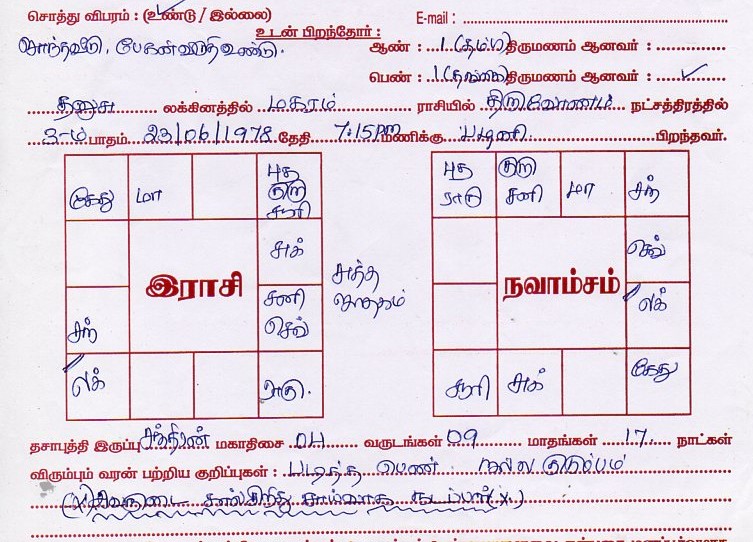 சொத்து விபரம் : (உண்டு / இல்லை) E-mail :
உடன் பிறந்தோர் :
சொந்தவீடு, உண்டு. ஆண் : 1 (தம்பி) திருமணம் ஆனவர் :
பெண் : 1 (தங்கை) திருமணம் ஆனவர் :
தனுசு லக்கினத்தில் மகரம் ராசியில் திருவோணம் நட்சத்திரத்தில்
3-ம் பாதம் 23/06/1978 தேதி 7:15PM மணிக்கு பழனி பிறந்தவர்.
கேது மா புத குரு சூரி
சுக்
இராசி
சனி செவ்
சந்
லக் ராகு.
சுத்த ஜாதகம்
புத ராகு குரு சனி மா சந்
செவ்
நவாம்சம்
லக்
சூரி சுக் கேது
தசாபுத்தி இருப்பு சந்திரன் மகாதிசை 04 வருடங்கள் 09 மாதங்கள் 17 நாட்கள்
விரும்பும் வரன் பற்றிய குறிப்புகள் : படித்த பெண் நல்ல குடும்பம்
(x) இவருடைய கால் சிறிது சாய்வாக நடப்பார் (x)